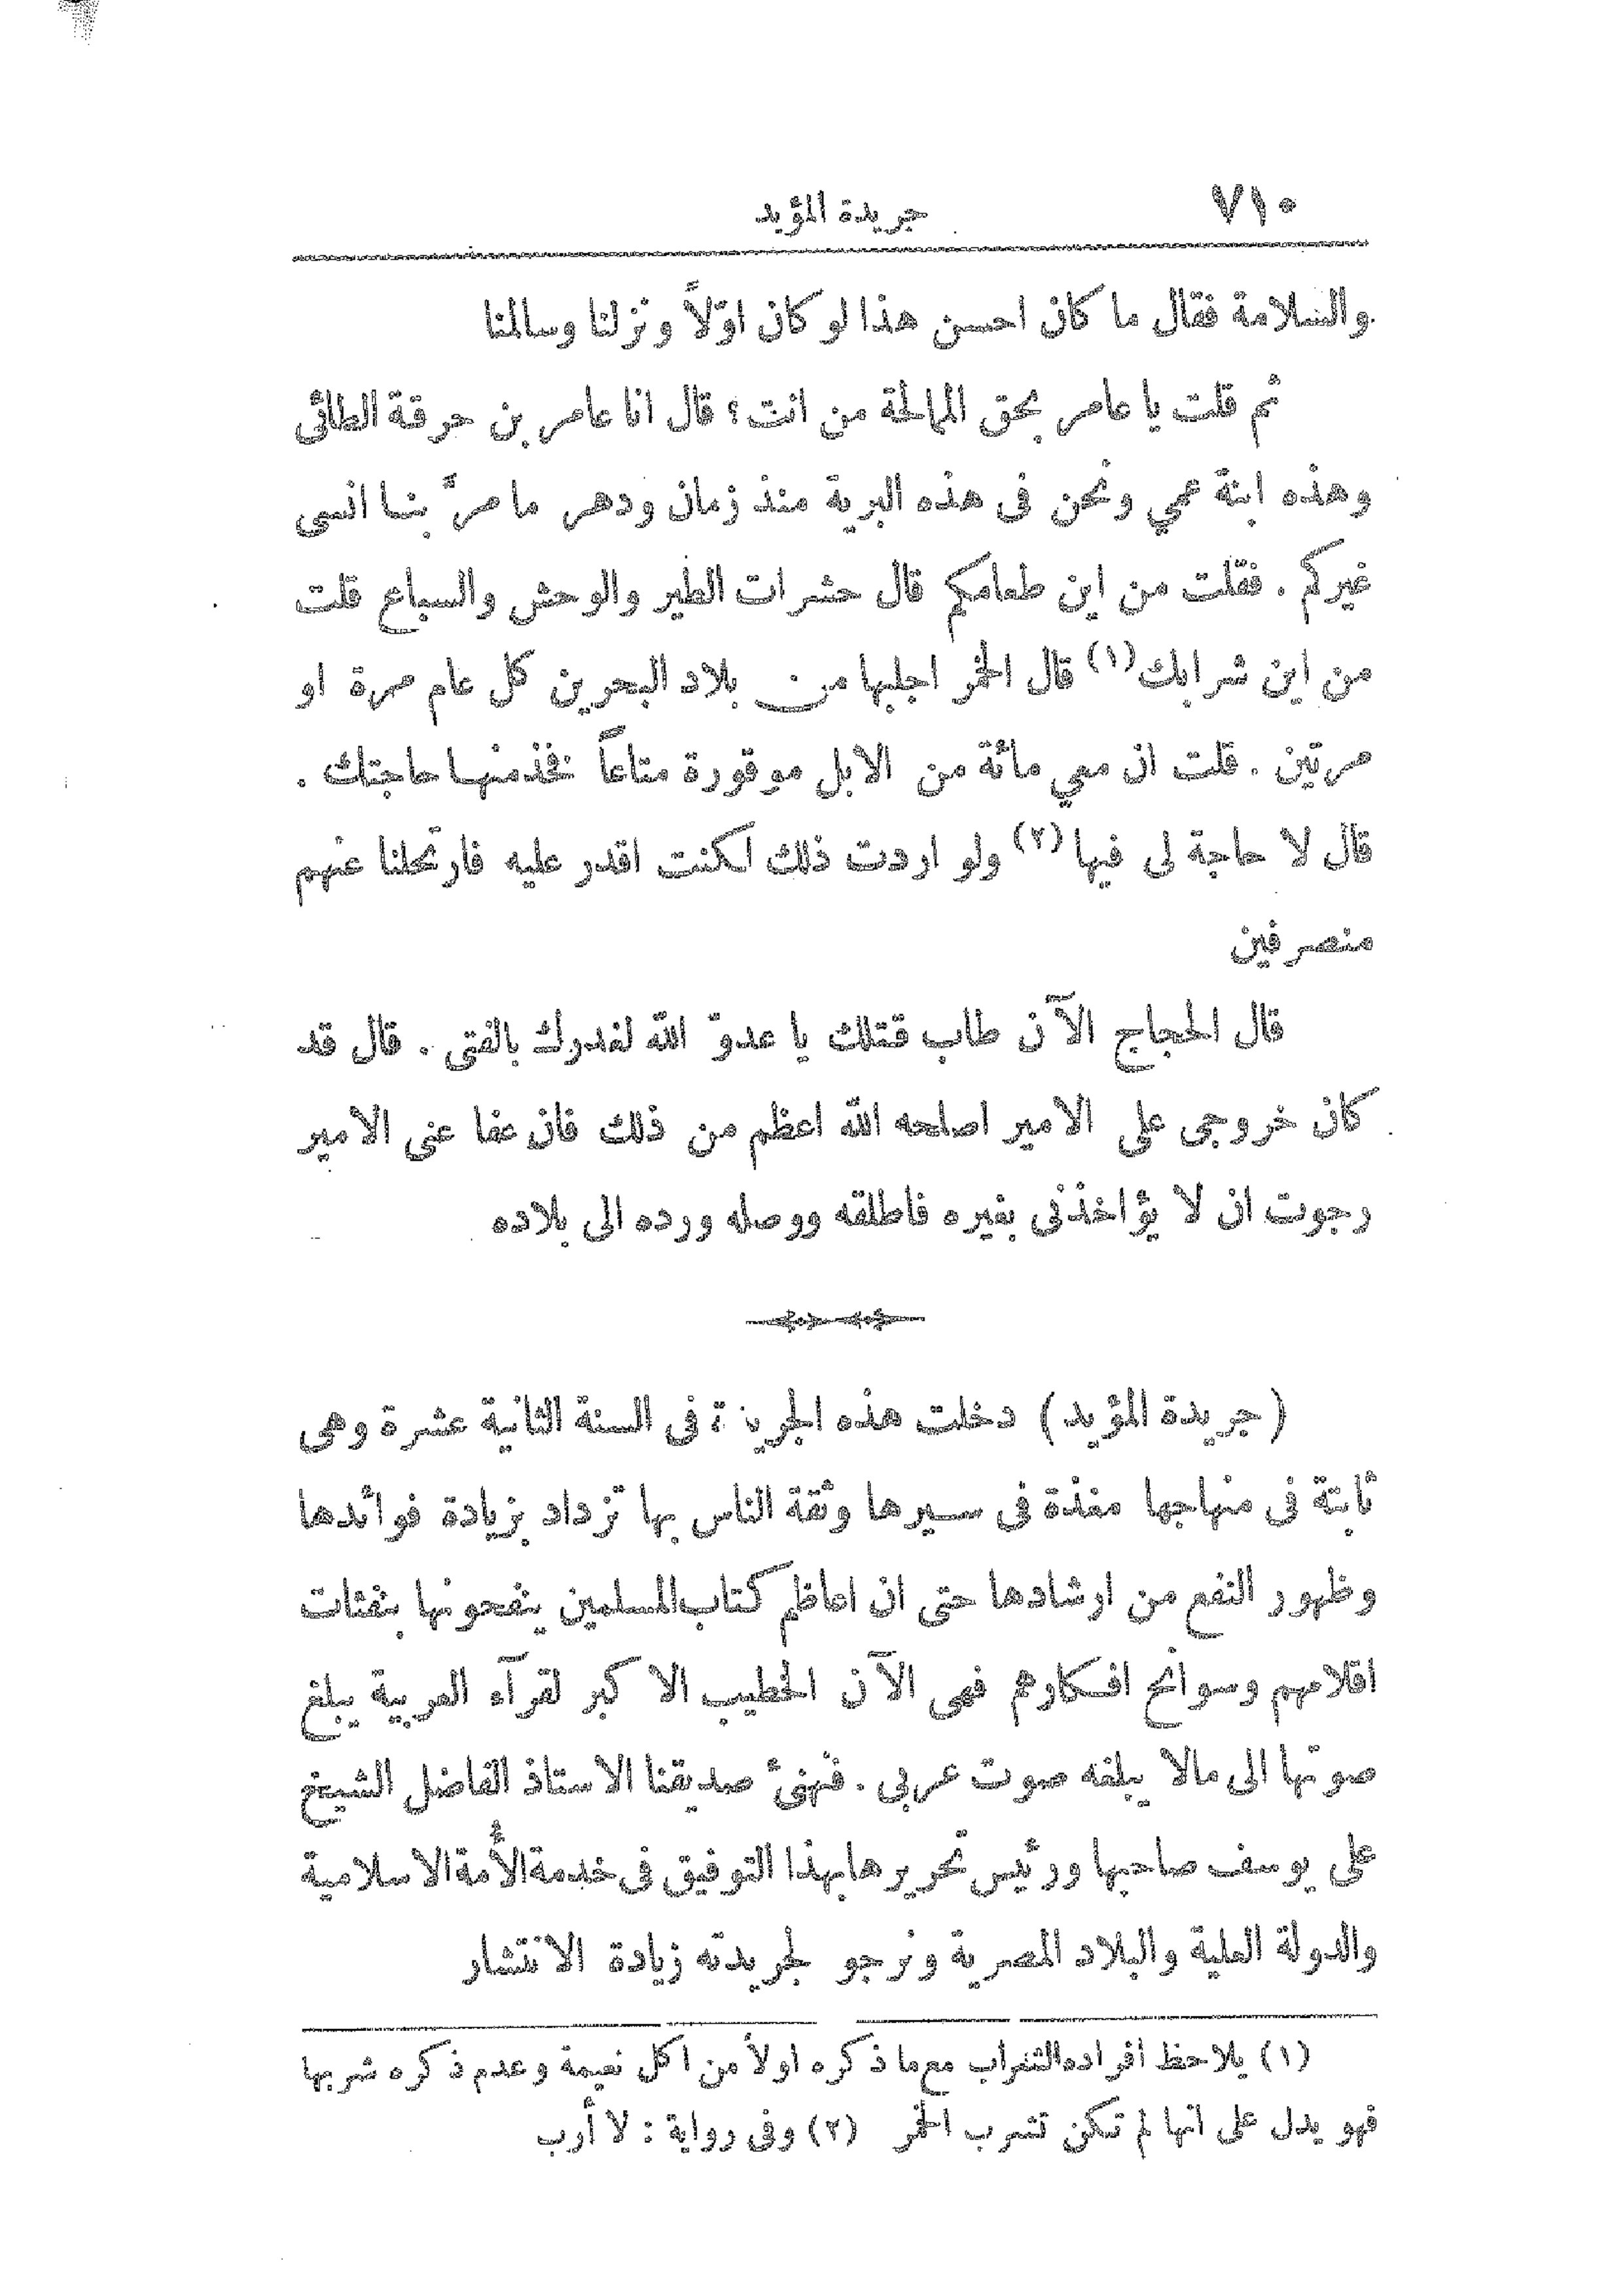 ٧١٠
جريدة المؤيد
والسلامة فقال ما كان احسن هذا لو كان اوّلاً ونزلنا وسالمنا
ثم قلت يا عامر بحق الممالحة من انت؟ قال انا عامر بن حرقة الطائى
وهذه ابنة عمي ونحن فى هذه البرية منذ زمان ودهر ما مرّ بنا انسى
غيركم . فقلت من اين طعامكم قال حشرات الطير والوحش والسباع قلت
من اين شرابك (١) قال الخمر اجلبها من بلاد البحرين كل عام مرة او
مرتين . قلت ان معي مائة من الابل موقورة متاعاً نخذ منها حاجتك .
قال لا حاجة لى فيها (٢) ولو اردت ذلك لكنت اقدر عليه فارتحلنا عنهم
منصرفين
قال الحجاج الآن طاب قتلك يا عدوّ الله لغدرك بالفتى . قال قد
كان خروجى على الامير اصلحه الله اعظم من ذلك فان عفا عنى الامير
رجوت ان لا يؤاخذنى بغيره فاطلقه ووصله ورده الى بلاده
(جريدة المؤيد) دخلت هذه الجريدة فى السنة الثانية عشرة وهى
ثابتة فى منهاجها مغذة فى سيرها وثقة الناس بها تزداد بزيادة فوائدها
وظهور النفع من ارشادها حتى ان اعاظم كتاب المسلمين ينفحونها بنفثات
اقلامهم وسوانح افكارهم فهى الآن الخطيب الاكبر لقرآء العربية يبلغ
صوتها الى مالا يبلغه صوت عربى . فنهنئ صديقنا الاستاذ الفاضل الشيخ
على يوسف صاحبها ورئيس تحريرها بهذا التوفيق فى خدمة الأمة الاسلامية
والدولة العلية والبلاد المصرية ونرجو لجريدته زيادة الانتشار
(١) يلاحظ افراده الشراب مع ما ذكره اولاً من اكل نعيمة وعدم ذكره شربها
فهو يدل على انها لم تكن تشرب الخمر (٢) وفى رواية : لا أرب